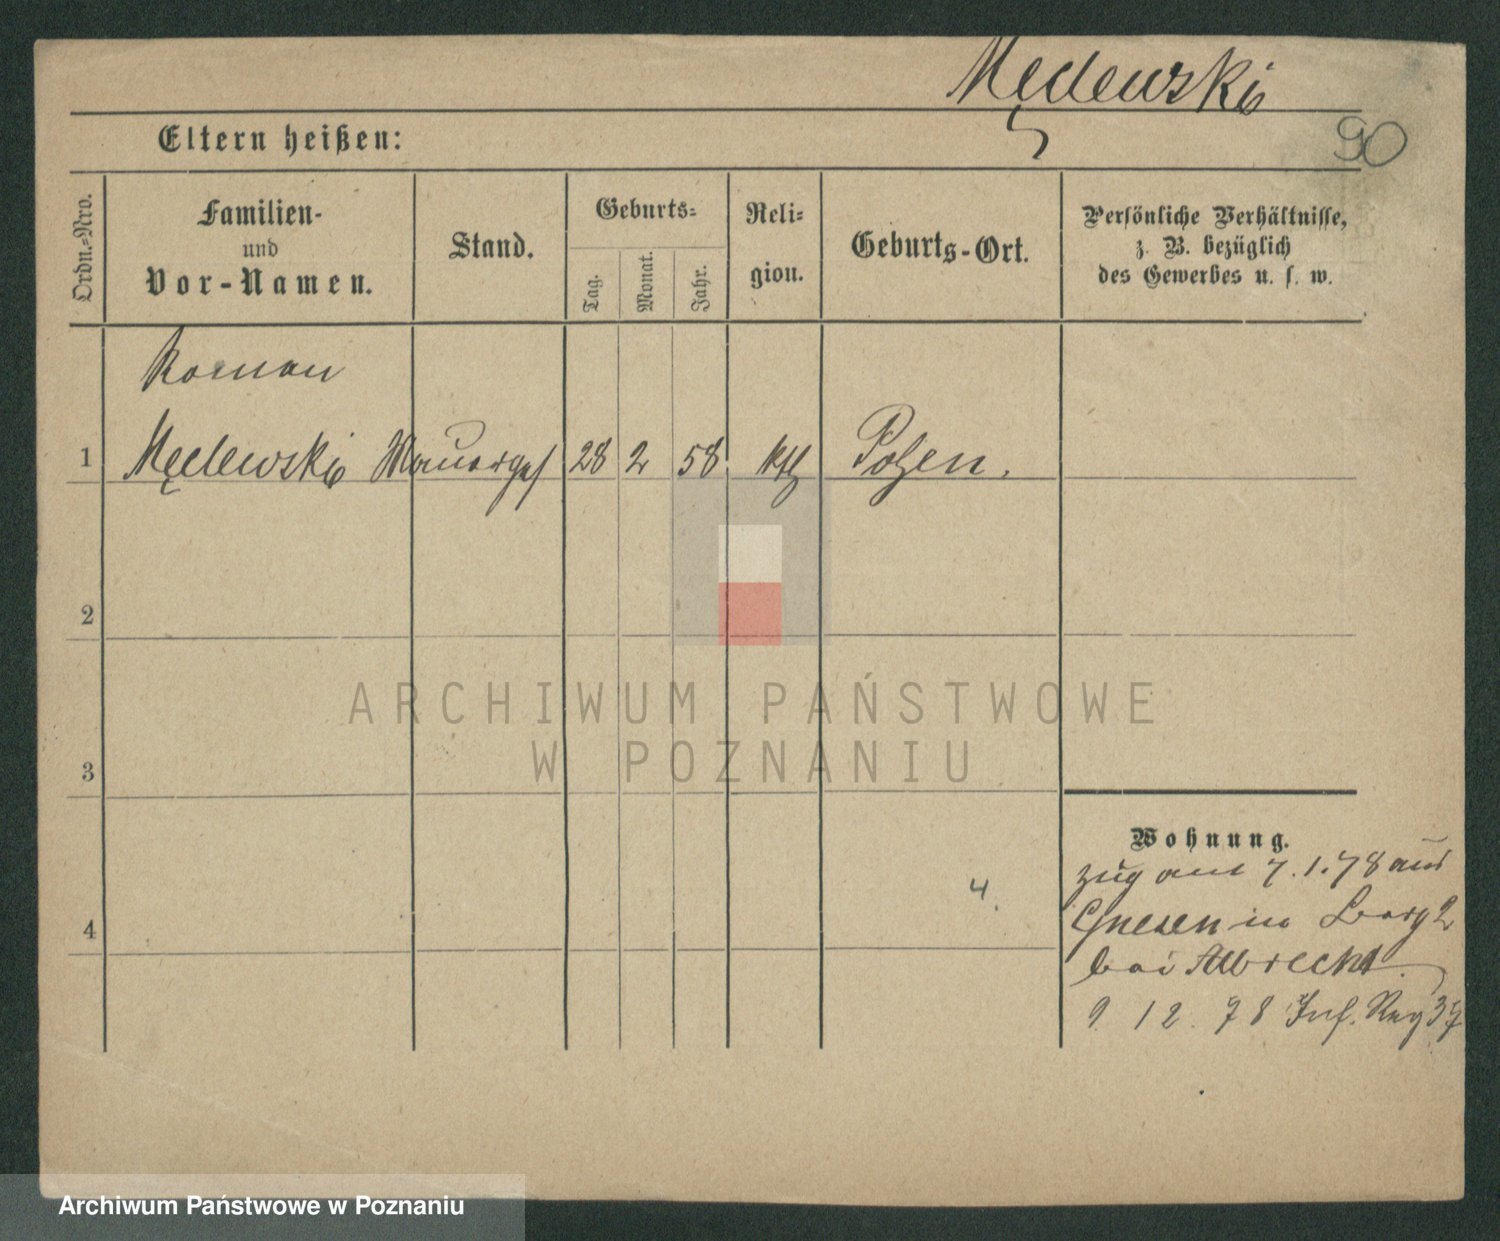 Mędewski
90
Eltern heißen:
Ordn.=Nro.
Familien-
und
Vor-Namen.
Stand.
Geburts=
Tag.
Monat.
Jahr.
Reli=
gion.
Geburts-Ort.
Persönliche Verhältnisse,
z. B. bezüglich
des Gewerbes u. s. w.
Roman
1 Mędlewski Maurerges 28 2 58 kth Posen.
2
3
Wohnung.
zug am 7.1.78 aus
Gnesen in 2
bei Albrecht.
4.
4
9 12. 78 Inf. Reg 37
ARCHIWUM PAŃSTWOWE
W POZNANIU
Archiwum Państwowe w Poznaniu